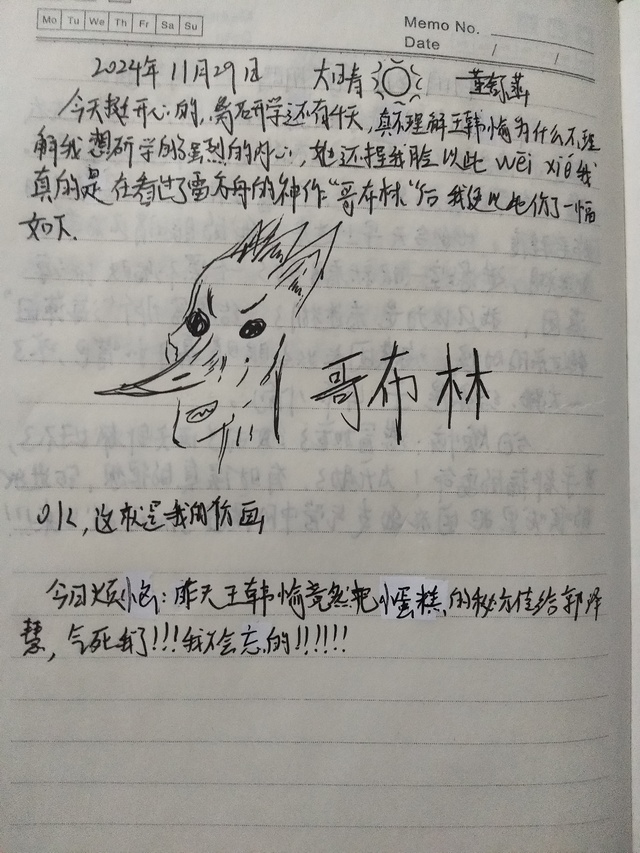 Mo Tu We Th Fr Sa Su
Memo No.
Date / /
2024年11月29日 大日青
今天挺开心的,离石开学还有4天,真不理解王韩愉为什么不理
解我想研学的强烈的内心,她还捏我脸以此wēi xié我
真的是在看过了雷方舟的神作“哥布林”后我便以此仿了一幅
如下.
哥布林
OK,这就是我的仿画
今日烦小色:昨天王韩愉竟然把小蛋糕的秘方传给郭泽
慧,气死我了!!!我不会忘的!!!!!!